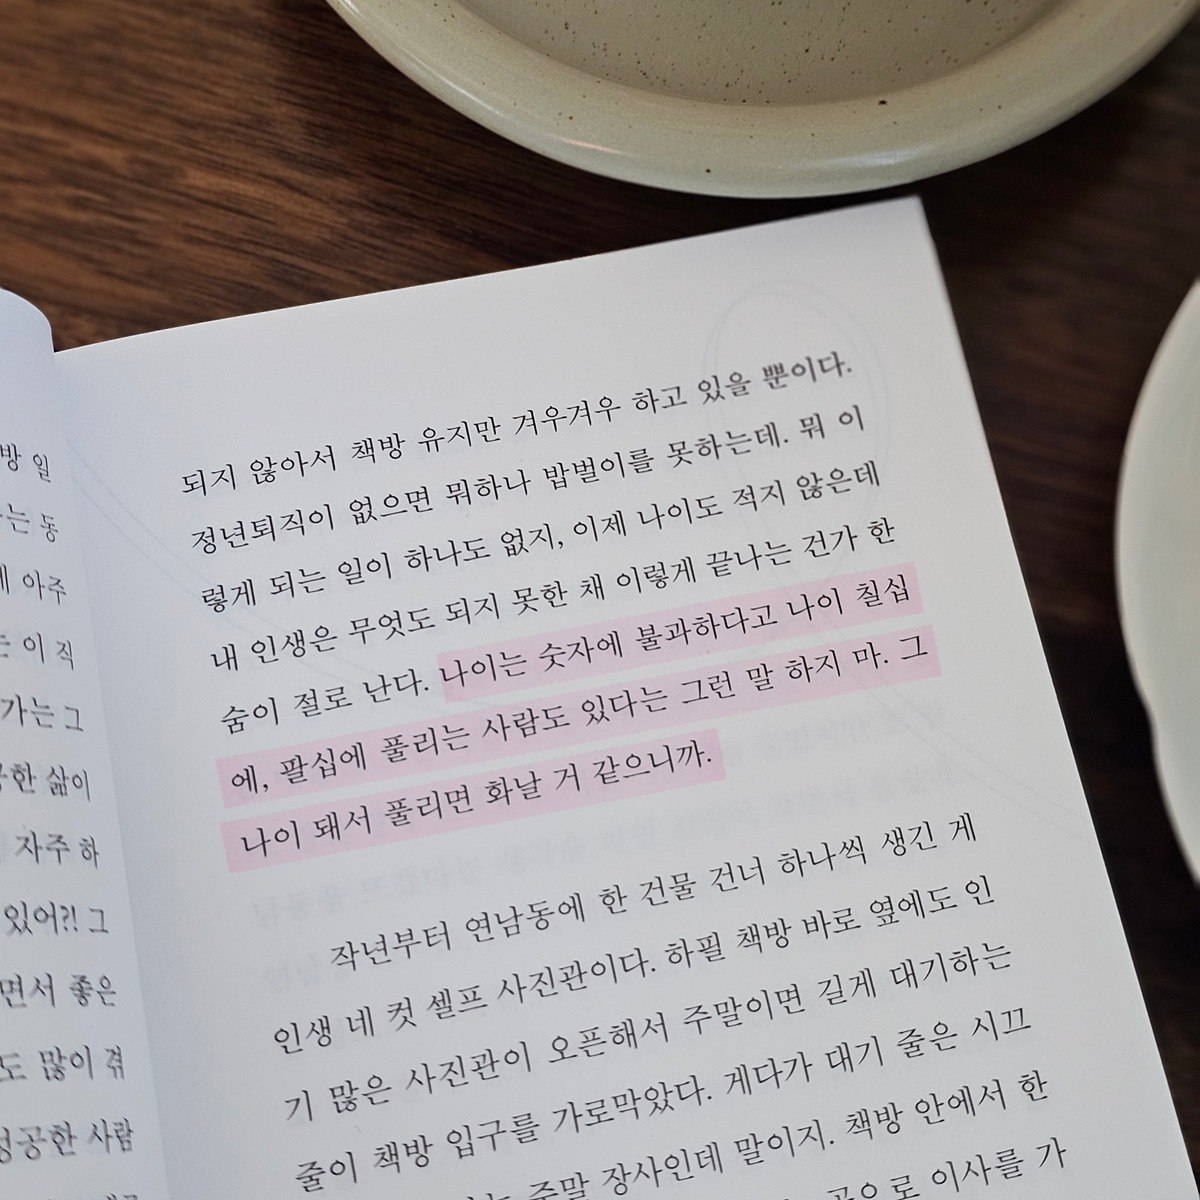 방 일
는 동
아주
이 직
가는 그
한 삶이
자주 하
있어?! 그
면서 좋은
도 많이 겪
성공한 사람
되지 않아서 책방 유지만 겨우겨우 하고 있을 뿐이다.
정년퇴직이 없으면 뭐하나 밥벌이를 못하는데. 뭐 이
렇게 되는 일이 하나도 없지, 이제 나이도 적지 않은데
내 인생은 무엇도 되지 못한 채 이렇게 끝나는 건가 한
숨이 절로 난다. 나이는 숫자에 불과하다고 나이 칠십
에, 팔십에 풀리는 사람도 있다는 그런 말 하지 마. 그
나이 돼서 풀리면 화날 거 같으니까.
작년부터 연남동에 한 건물 건너 하나씩 생긴 게
인생 네 컷 셀프 사진관이다. 하필 책방 바로 옆에도 인
기 많은 사진관이 오픈해서 주말이면 길게 대기하는
줄이 책방 입구를 가로막았다. 게다가 대기 줄은 시끄
주말 장사인데 말이지. 책방 안에서 한
곳으로 이사를 가